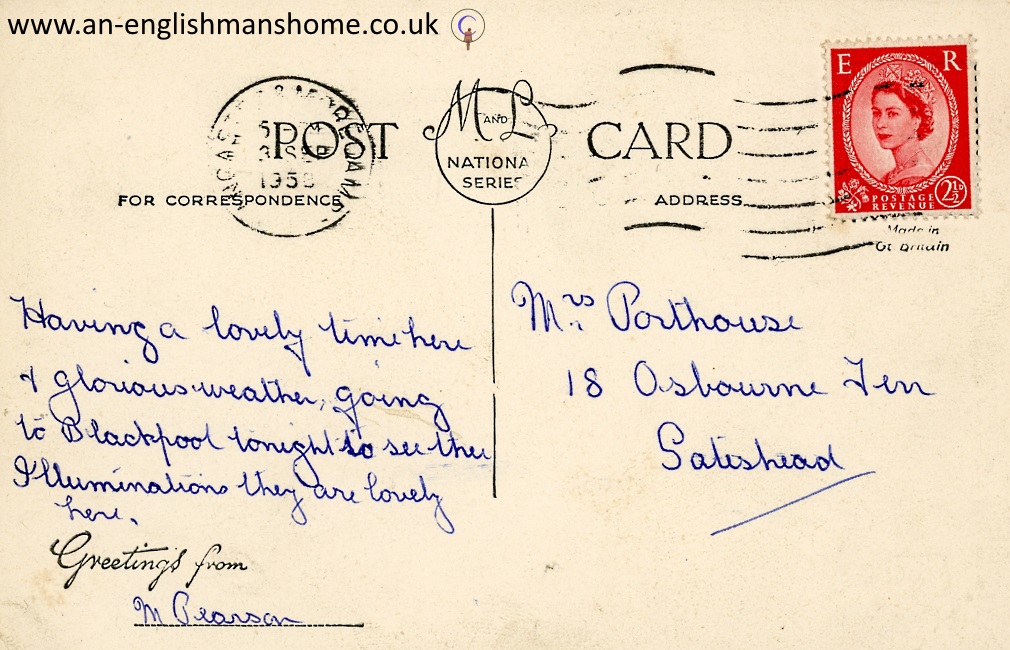 www.an-englishmanshome.co.uk
POST CARD
M AND L
NATIONAL
SERIES
FOR CORRESPONDENCE
ADDRESS
E R
POSTAGE
REVENUE
2½D
Made in
Gt Britain
& MORECAMB
3 SEP
195
Having a lovely time here
& glorious weather, going
to Blackpool tonight to see thee
Illuminations they are lovely
here.
Greetings from
M Pearson
Mrs Porthouse
18 Osbourne Terr
Gateshead